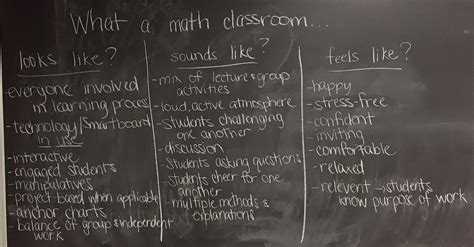 What a math classroom...
looks like?
-everyone involved
in learning process
-technology/Smartboard
in use
-interactive
-engaged students
-manipulatives
-project based when applicable
-anchor charts
-balance of group & independent
work
sounds like?
-mix of lecture & group
activities
-loud, active atmosphere
-students challenging
one another
-discussion
-students asking questions
-students cheer for one
another
-multiple methods &
explanations
feels like?
-happy
-stress-free
-confident
-inviting
-comfortable
-relaxed
-relevent → students
know purpose of work